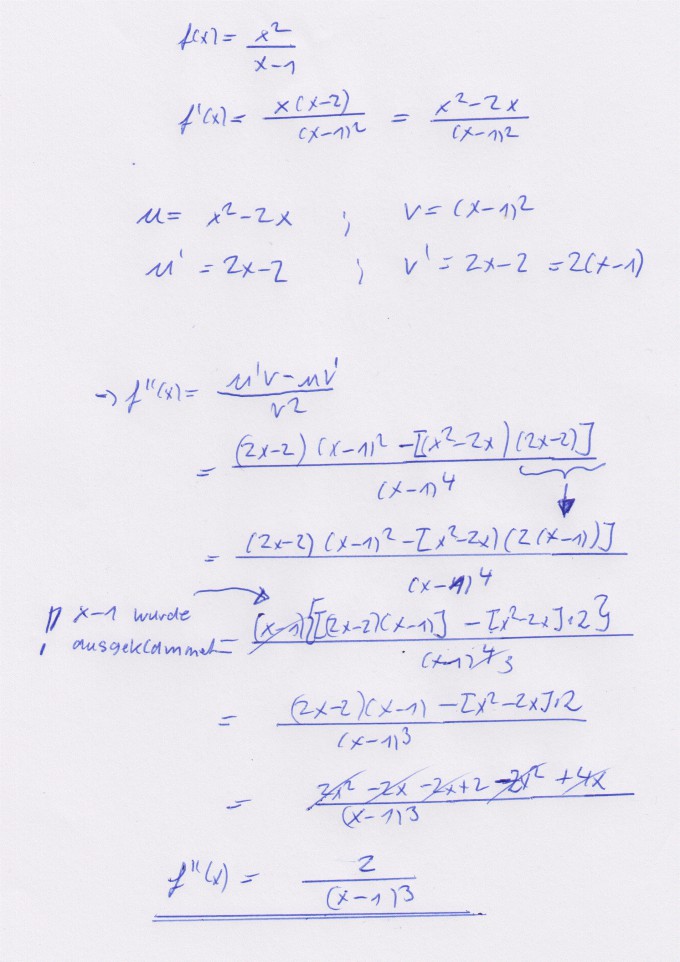 f(x) = x² / (x-1)
f'(x) = x(x-2) / (x-1)² = (x²-2x) / (x-1)²
u = x²-2x ; v = (x-1)²
u' = 2x-2 ; v' = 2x-2 = 2(x-1)
→ f''(x) = (u'v - uv') / v2
= (2x-2) (x-1)² - [(x²-2x) (2x-2)] / (x-1)⁴
= (2x-2) (x-1)² - [x²-2x) (2(x-1))] / (x-1)⁴
x-1 wurde
ausgeklammert = [x-1){[(2x-2)(x-1)] - [x²-2x]·2} / (x-1)⁴ 3
= (2x-2)(x-1) - [x²-2x]·2 / (x-1)³
= 2x² - 2x - 2x + 2 - 2x² + 4x / (x-1)³
f''(x) = 2 / (x-1)³